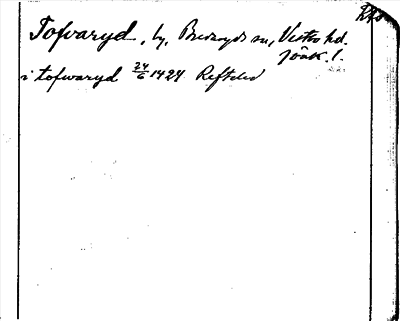 Tofvaryd, by, Bredaryds sn, Västbo hd.
Jönk. l.
i tofwaryd 24/6 1424 Reftele